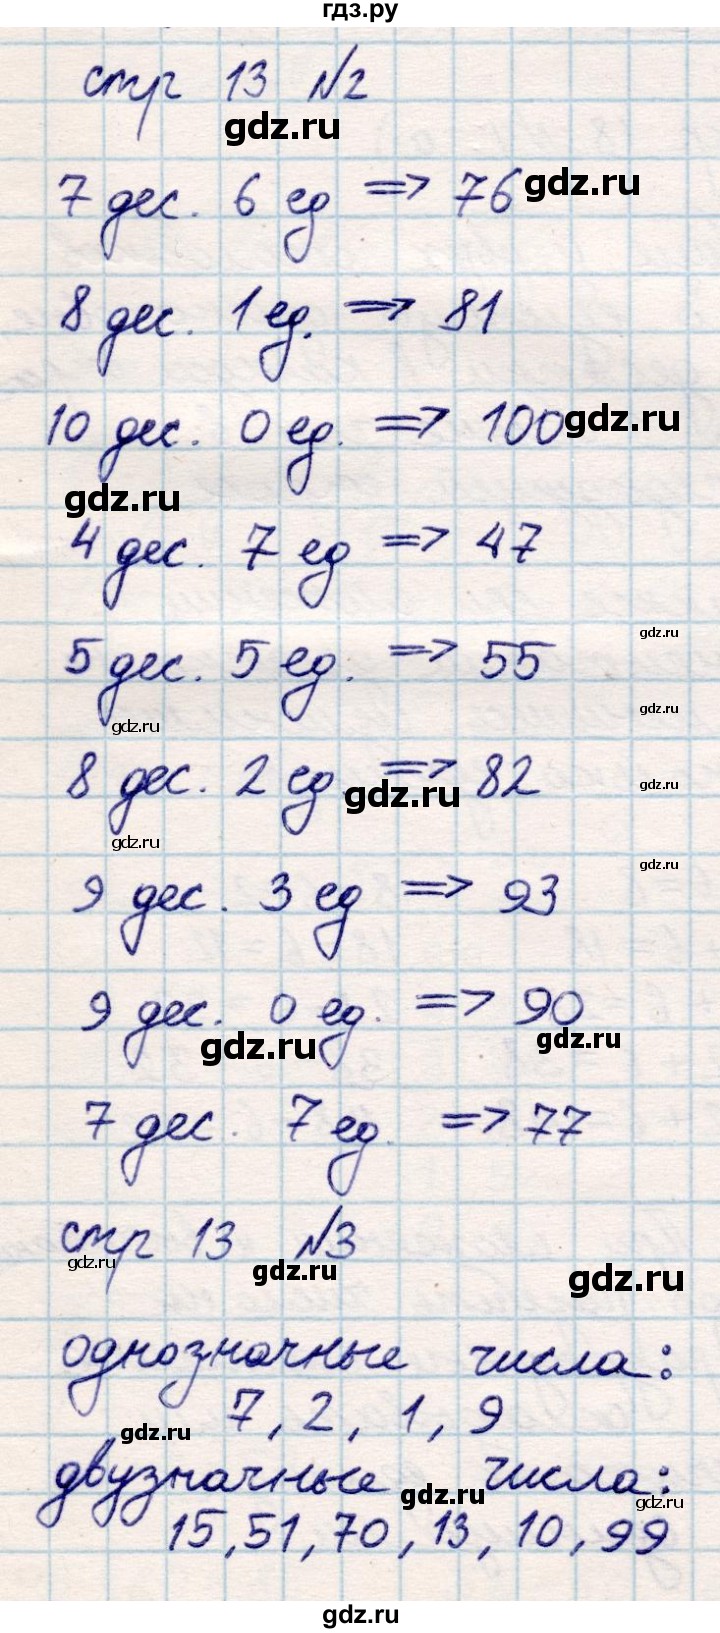 гдз.ру
стр 13 №2
gdz.ru
7 дес. 6 ед => 76
gdz.ru
8 дес. 1 ед. => 81
10 дес. 0 ед. => 100
gdz.ru
gdz.ru
4 дес. 7 ед => 47
gdz.ru
5 дес. 5 ед. => 55
gdz.ru
gdz.ru
8 дес. 2 ед => 82
gdz.ru
gdz.ru
gdz.ru
gdz.ru
9 дес. 3 ед => 93
9 дес. 0 ед. => 90
gdz.ru
gdz.ru
7 дес. 7 ед. => 77
стр 13 №3
gdz.ru
gdz.ru
gdz.ru
однозначные числа:
7, 2, 1, 9
gdz.ru
двузначные числа:
gdz.ru
gdz.ru
15, 51, 70, 13, 10, 99
gdz.ru